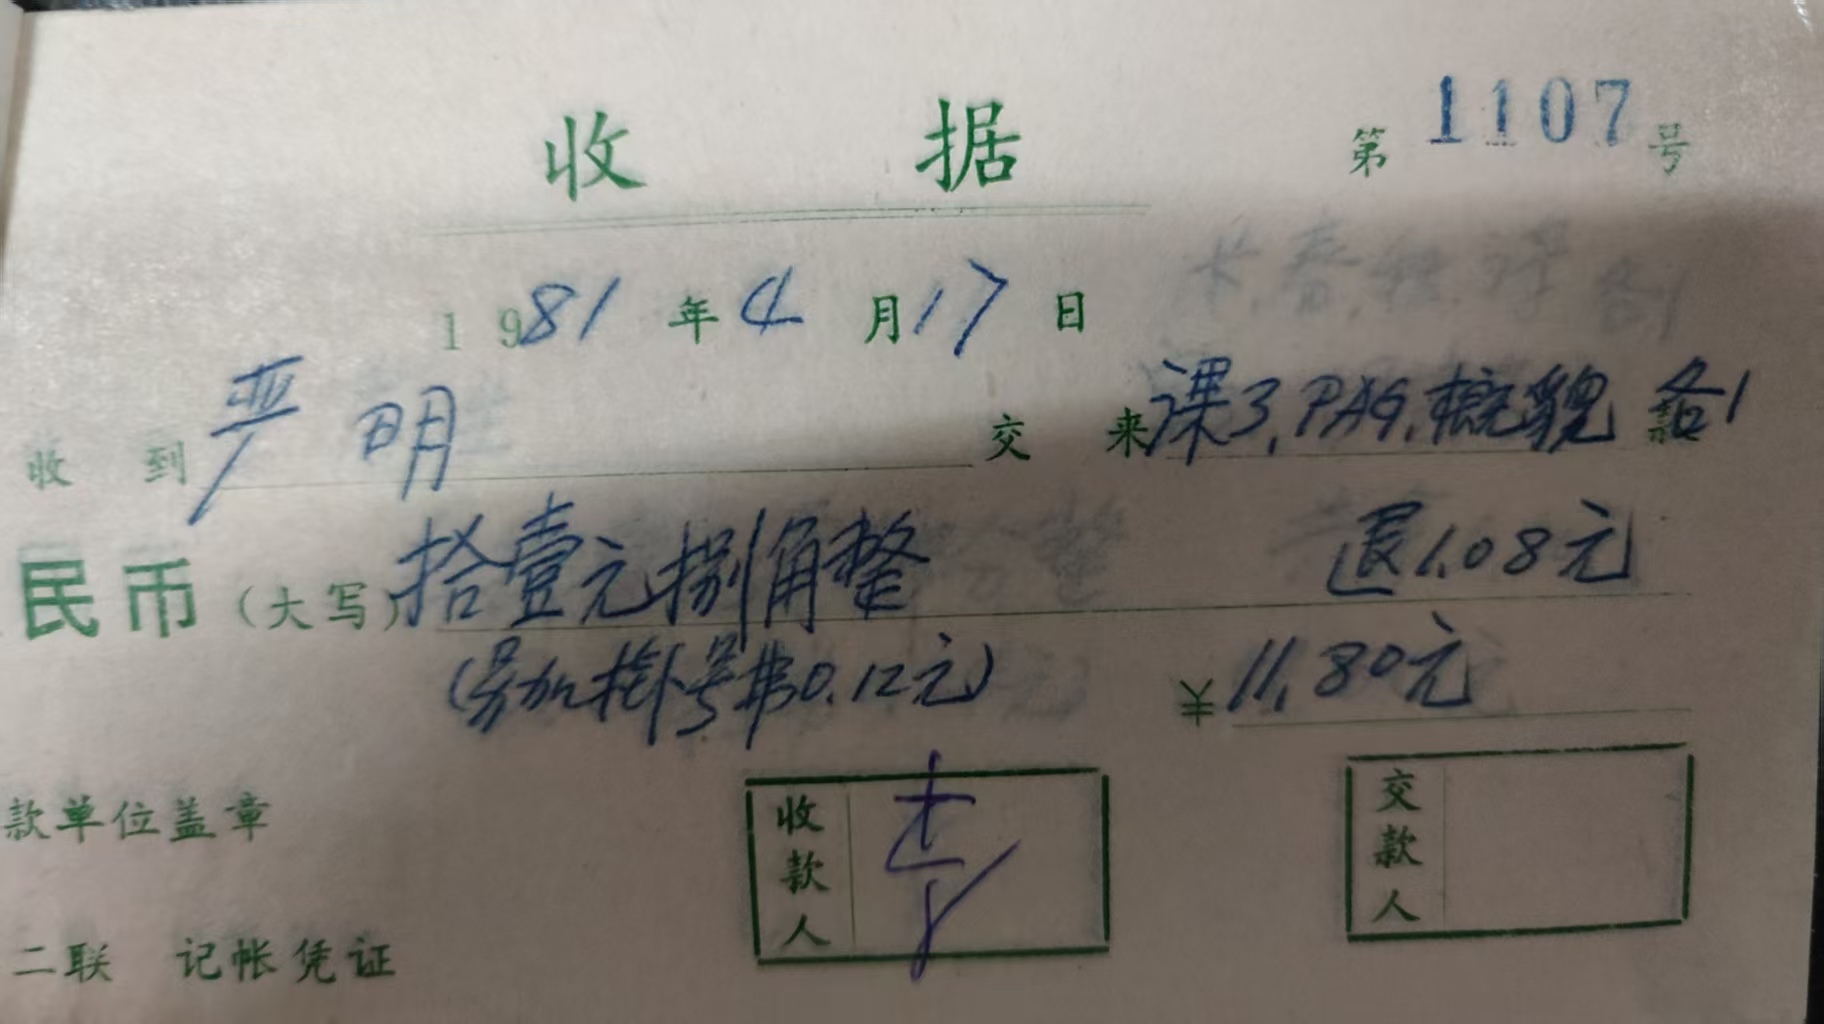 收 据
第 1107 号
1981 年 4 月 17 日
收 到 严 明 交 来 课3, PAG, 概貌 各1
民币（大写）拾壹元捌角整 退1.08元
(另加挂号费0.12元) ¥11.80元
款单位盖章
收款人
交款人
二联 记帐凭证